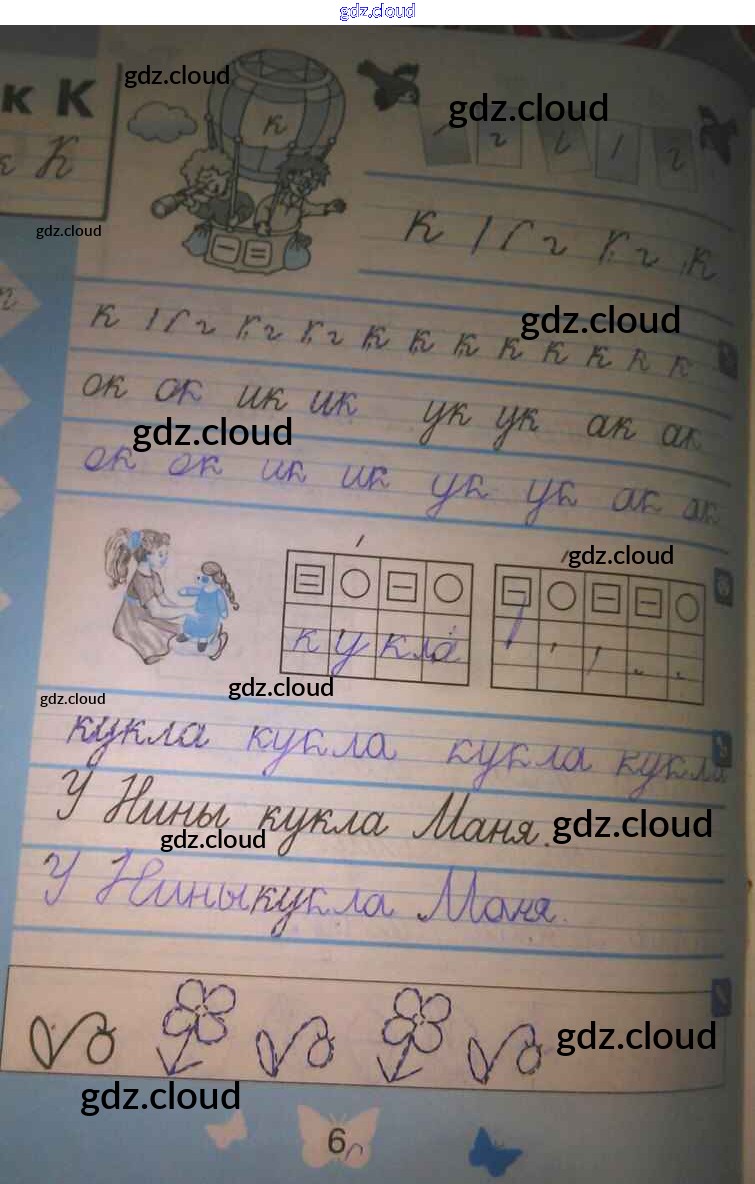 gdz.cloud
к К
gdz.cloud
к
gdz.cloud
К
к г г к
gdz.cloud
gdz.cloud
к г г г г г к к к к к к к к
ок ок ик ик ук ук ак ак
gdz.cloud
ок ок ик ик ук ук ак ак
gdz.cloud
кукла
gdz.cloud
gdz.cloud
кукла кукла кукла кукла
У Нины кукла Маня.
gdz.cloud
gdz.cloud
У Нины кукла Маня.
gdz.cloud
gdz.cloud
6